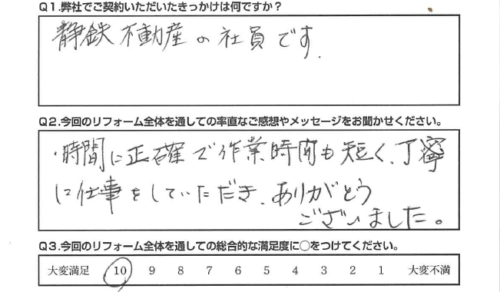 Q1.弊社でご契約いただいたきっかけは何ですか?
静鉄不動産の社員です.
Q2.今回のリフォーム全体を通しての率直なご感想やメッセージをお聞かせください。
・時間に正確で作業時間も短く、丁寧
に仕事をしていただき、ありがとう
ございました。
Q3.今回のリフォーム全体を通しての総合的な満足度に○をつけてください。
大変満足 10 9 8 7 6 5 4 3 2 1 大変不満